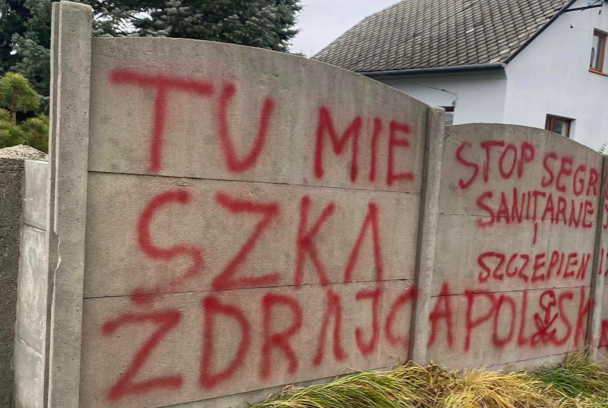 TU MIE
SZKA
ZDRAJCA POLSK
STOP SEGR
SANITARNE
I
SZCZEPIEN